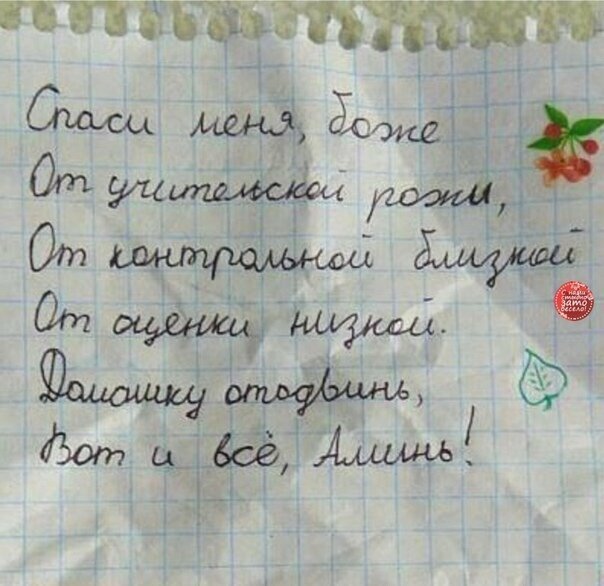 Спаси меня, боже
От учительской рожи,
От контрольной близкой
От оценки низкой.
Домашку отодвинь,
Вот и всё, Аминь!
зато
весело!